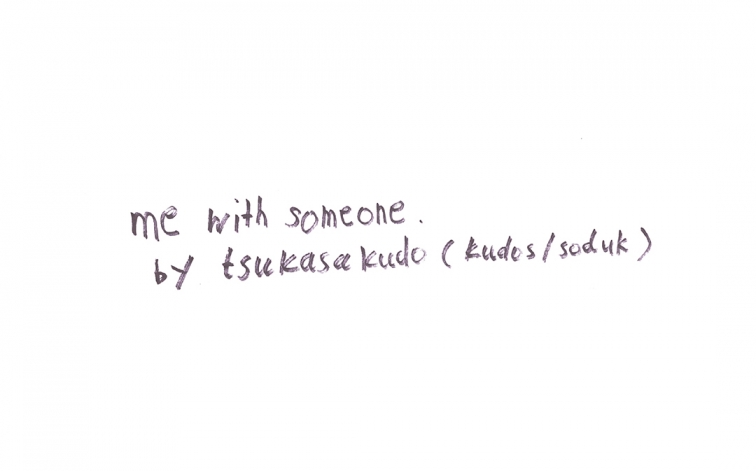 me with someone.
by tsukasakudo (kudos/soduk)